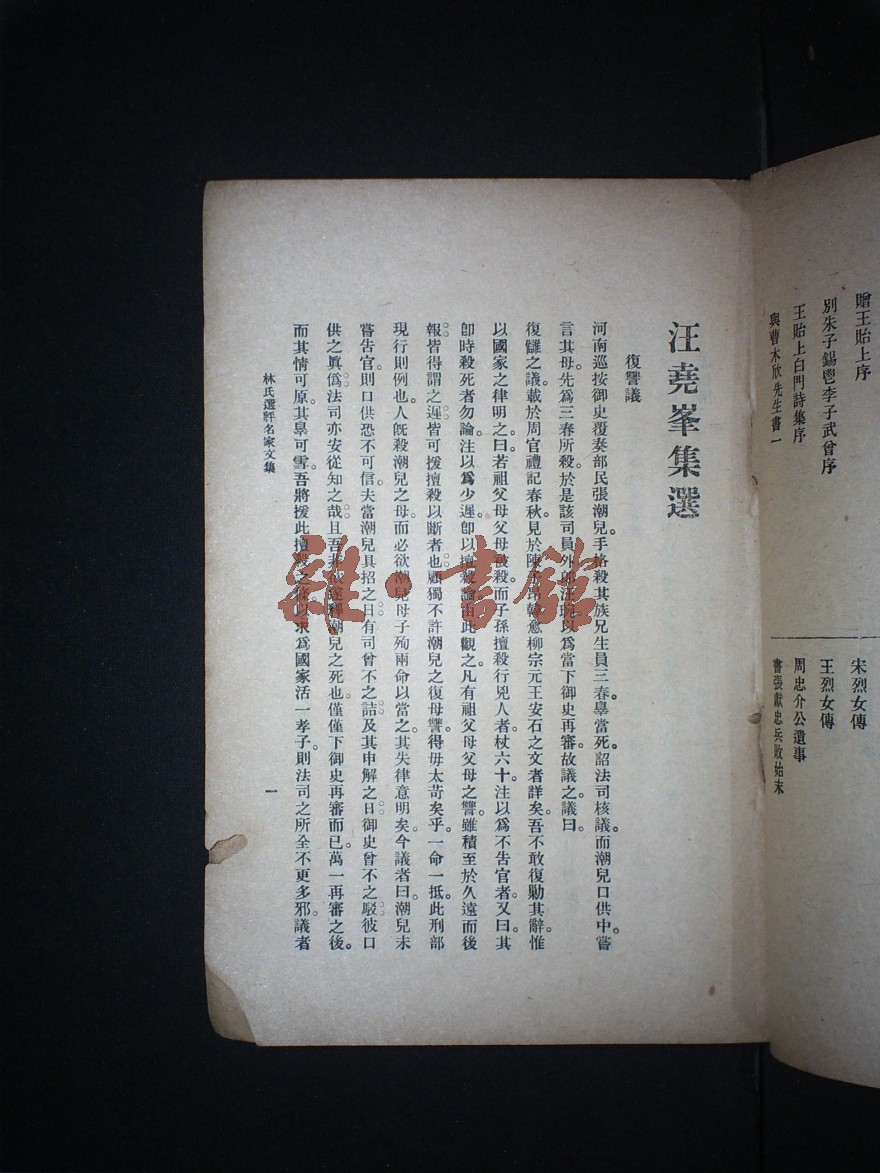 贈王貽上序
別朱子錫鬯李子武曾序
王貽上白門詩集序
與曹木欣先生書一
宋烈女傳
王烈女傳
周忠介公遺事
書張獻忠兵敗始末
汪堯峯集選
復讐議
河南巡按御史覆奏部民張潮兒手格殺其族兄生員三春。辠當死。詔法司核議。而潮兒口供中。嘗
言其母先爲三春所殺。於是該司員外郎汪琬以爲當下御史再審。故議之。議曰。
復讎之議。載於周官禮記春秋。見於陳子昂韓愈柳宗元王安石之文者詳矣。吾不敢復勦其辭。惟
以國家之律明之。曰。若祖父母父母被殺。而子孫擅殺行兇人者。杖六十。注以爲不告官者。又曰。其
卽時殺死者勿論。注以爲少遲。卽以擅殺論。由此觀之。凡有祖父母父母之讐。雖積至於久遠而後
報。皆得謂之遲。皆可援擅殺以斷者也。顧獨不許潮兒之復母讐。得毋太苛矣乎。一命一抵。此刑部
現行則例也。人旣殺潮兒之母。而必欲潮兒母子殉兩命以當之。其失律意明矣。今議者曰。潮兒未
嘗告官。則口供恐不可信。夫當潮兒具招之日。有司曾不之詰。及其申解之日。御史曾不之駁。彼口
供之眞僞。法司亦安從知之哉。且吾非欲遂釋潮兒之死也。僅僅下御史再審而已。萬一再審之後。
而其情可原。其辠可雪。吾將援此擅殺之條。以求爲國家活一孝子。則法司之所全不更多邪。議者
林氏選評名家文集
一
雜·書館